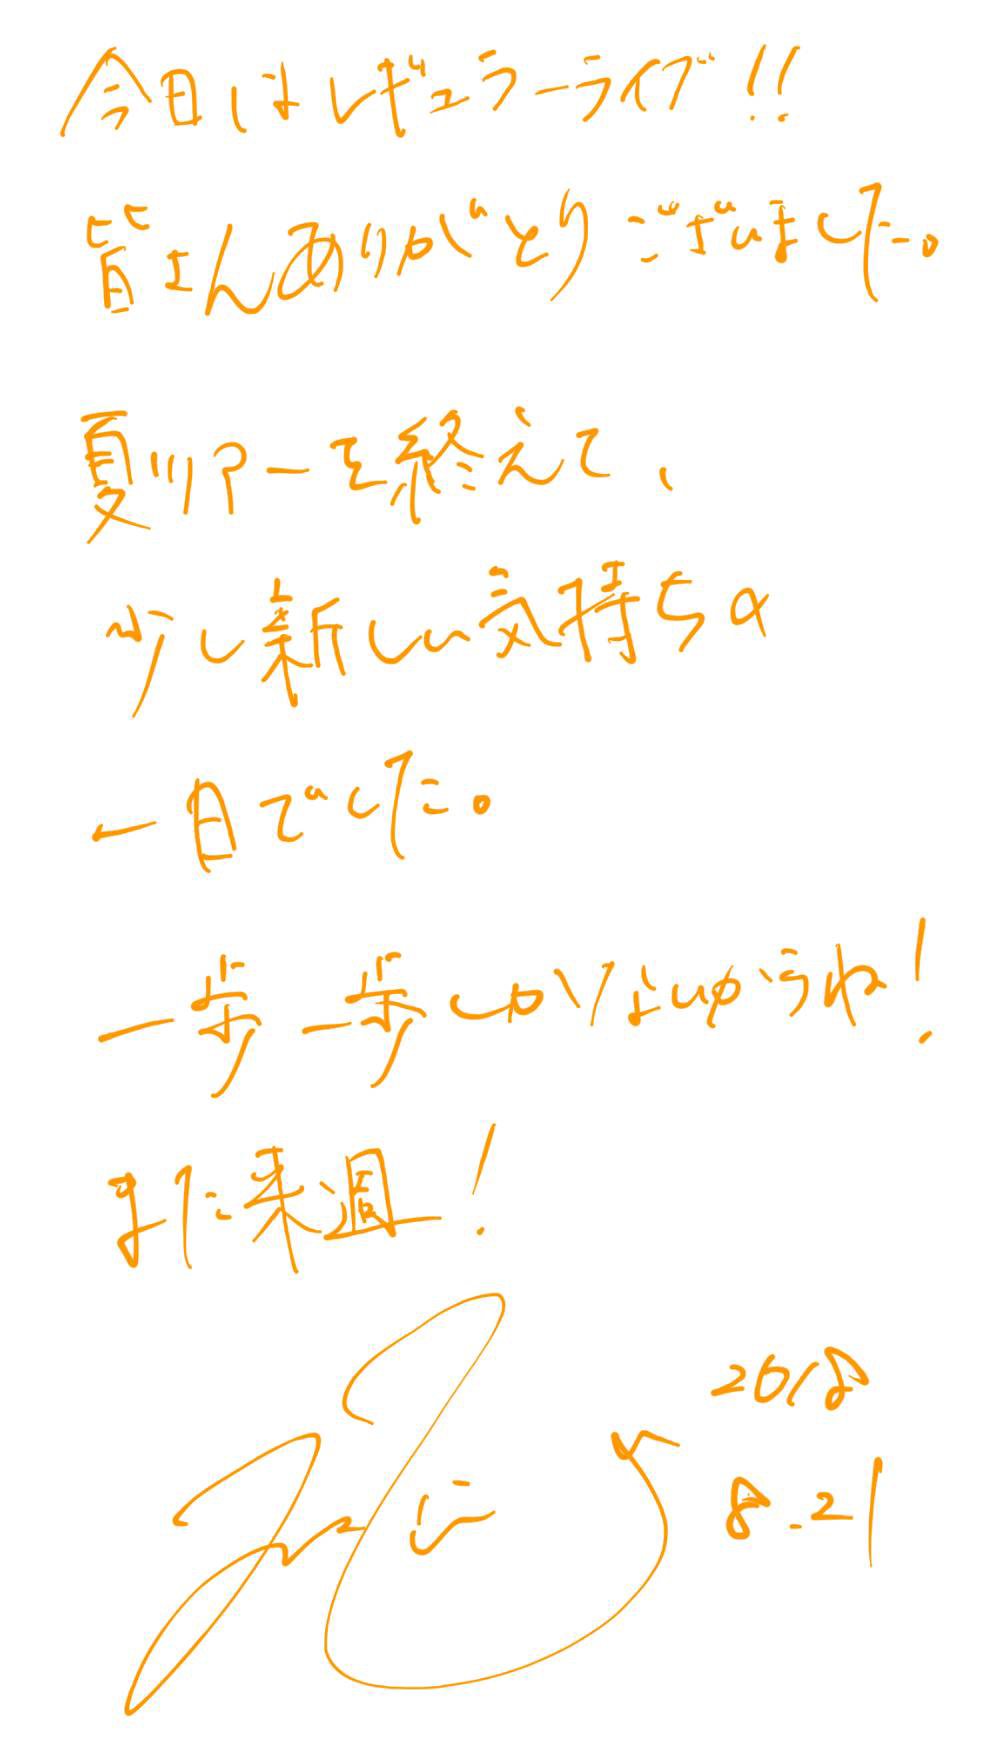 今日はレギュラーライブ!!
皆さんありがとうございました。
夏ツアーを終えて、
少し新しい気持ちの
一日でした。
一歩一歩しかないからね!
また来週!
2018
8.21